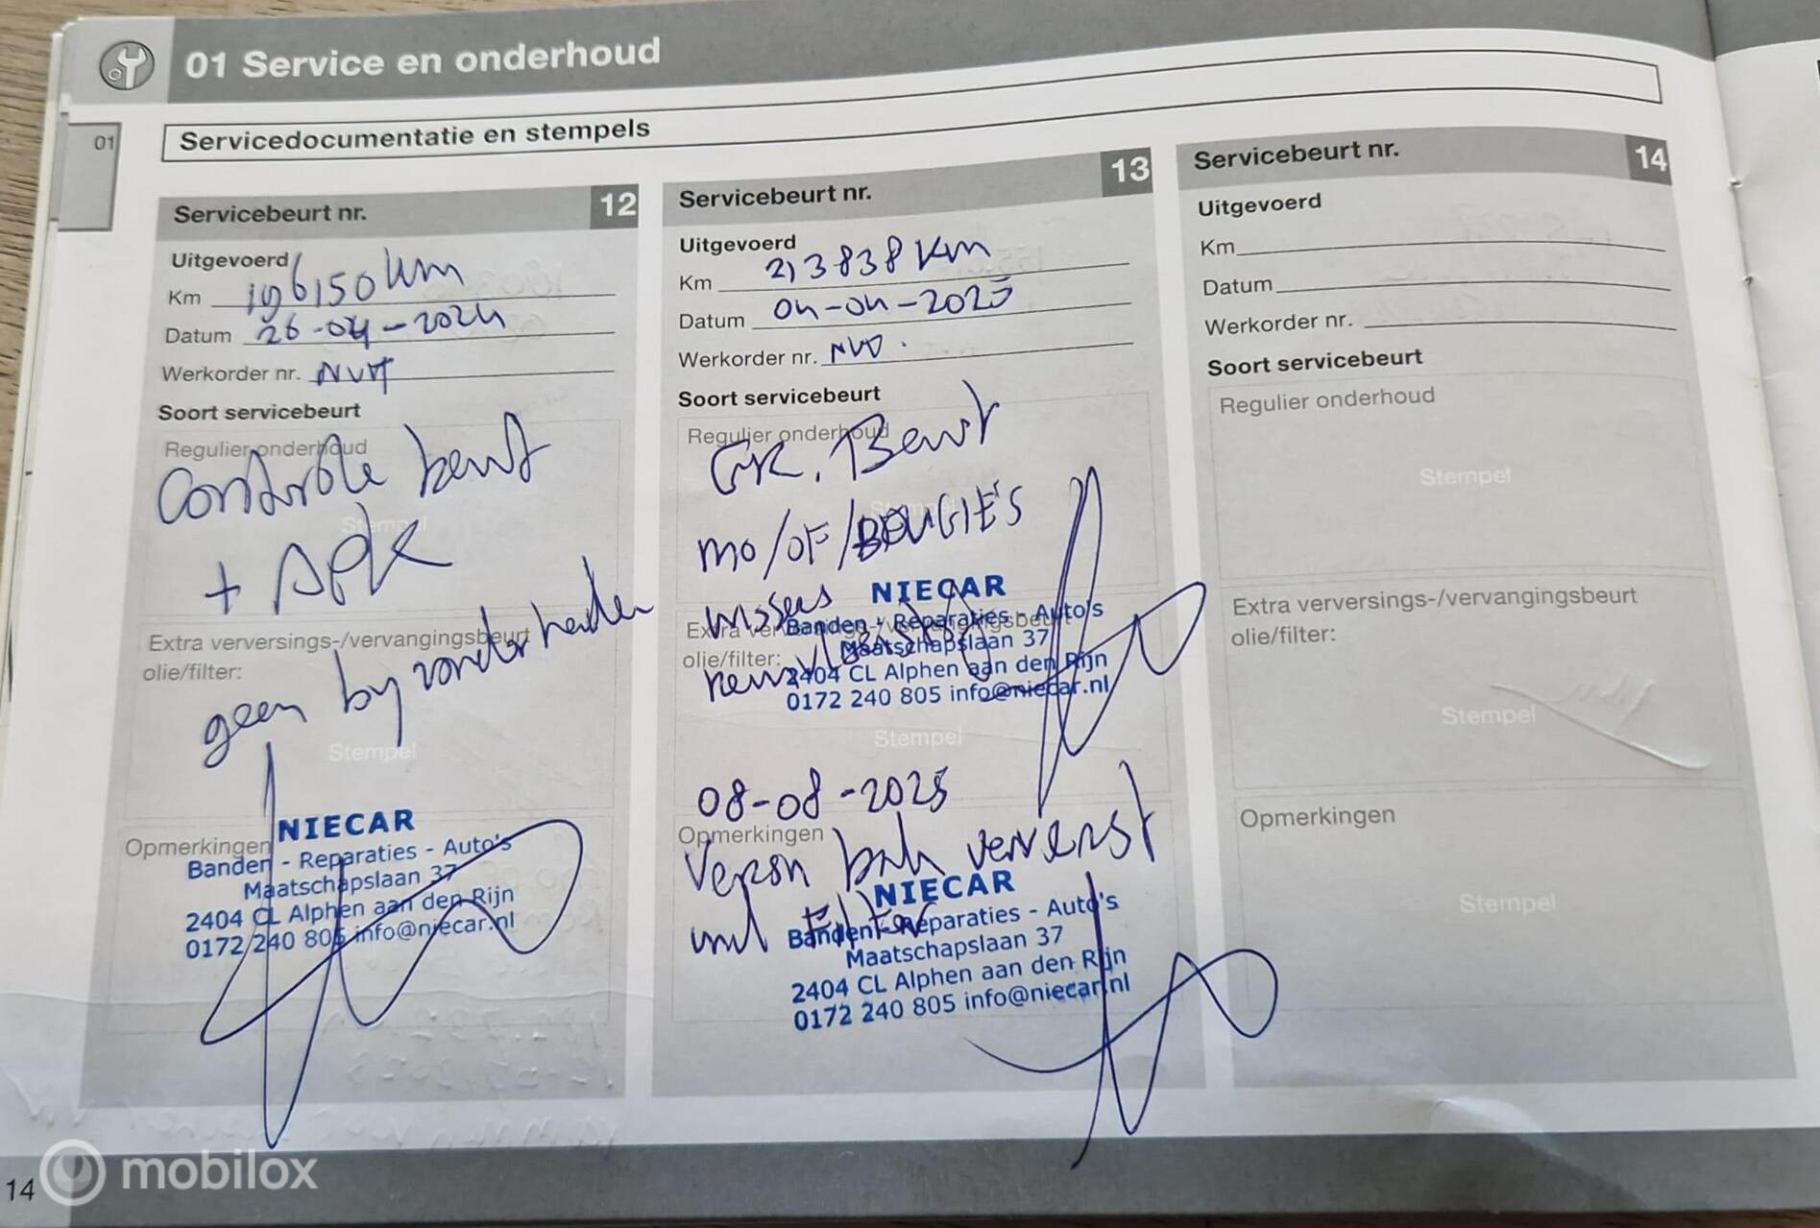 01 Service en onderhoud
01
Servicedocumentatie en stempels
Servicebeurt nr. 12
Uitgevoerd
Km 196150 km
Datum 26-04-2024
Werkorder nr. NVT
Soort servicebeurt
Regulier onderhoud
Controle beurt
Stempel
+ APK
Extra verversings-/vervangingsbeurt
olie/filter:
geen byzonderheden
Stempel
Opmerkingen
NIECAR
Banden - Reparaties - Auto's
Maatschapslaan 37
2404 CL Alphen aan den Rijn
0172 240 805 info@niecar.nl
Servicebeurt nr. 13
Uitgevoerd
Km 213838 Km
Datum 04-04-2025
Werkorder nr.
Soort servicebeurt
Regulier onderhoud
GR. Beurt
mo/OF/BOUGIE'S
NIECAR
Banden - Reparaties - Auto's
Extra verversings-/vervangingsbeurt
Maatschapslaan 37
olie/filter:
2404 CL Alphen aan den Rijn
0172 240 805 info@niecar.nl
Stempel
08-08-2025
Opmerkingen
bak ververst
NIECAR
Filter
Banden - Reparaties - Auto's
Maatschapslaan 37
2404 CL Alphen aan den Rijn
0172 240 805 info@niecar.nl
Servicebeurt nr. 14
Uitgevoerd
Km
Datum
Werkorder nr.
Soort servicebeurt
Regulier onderhoud
Stempel
Extra verversings-/vervangingsbeurt
olie/filter:
Stempel
Opmerkingen
Stempel
14
mobilox